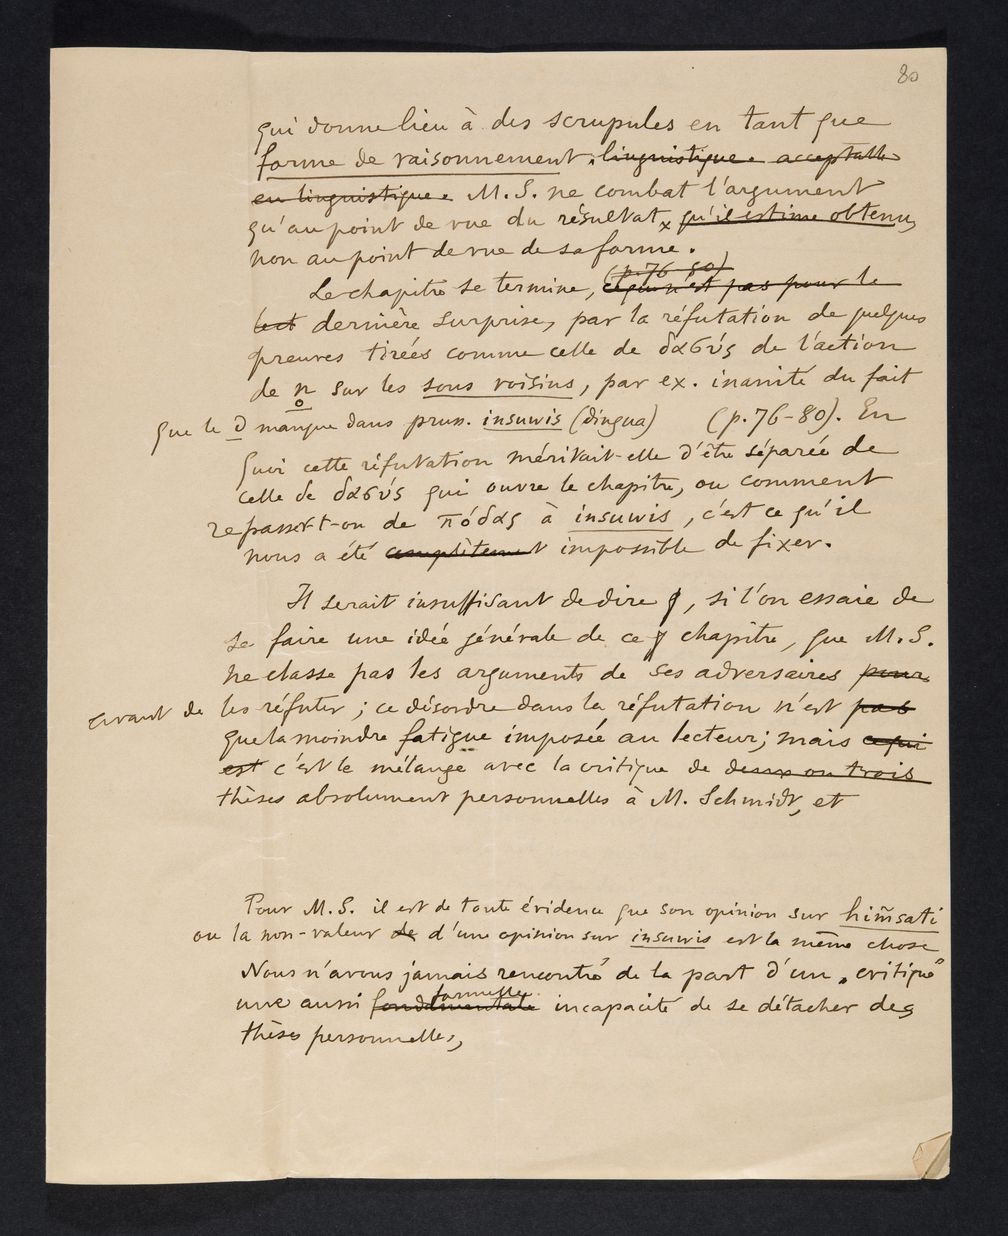 80
qui donne lieu à des scrupules en tant que
forme de raisonnement. linguistique. acceptable
en linguistique. M. S. ne combat l'argument
qu'au point de vue du résultat, qu'il estime obtenu,
non au point de vue de sa forme.
(p. 76-80)
Le chapitre se termine, ce qui n'est pas pour le
lect dernière surprise, par la réfutation de quelques
preuves tirées comme celle de δασύς de l'action
de n̥ sur les sons voisins, par ex. inanité du fait
que le d manque dans pruss. insuwis (dingua) (p. 76-80). En
quoi cette réfutation méritait-elle d'être séparée de
celle de δασύς qui ouvre le chapitre, ou comment
repasse-t-on de πόδας à insuwis, c'est ce qu'il
nous a été complètement impossible de fixer.
Il serait insuffisant de dire, si l'on essaie de
se faire une idée générale de ce chapitre, que M. S.
ne classe pas les arguments de ses adversaires pour
avant de les réfuter; ce désordre dans la réfutation n'est pas
que la moindre fatigue imposée au lecteur; mais ce qui
est c'est le mélange avec la critique de deux ou trois
thèses absolument personnelles à M. Schmidt, et
Pour M. S. il est de toute évidence que son opinion sur him̃sati
ou la non-valeur de d'une opinion sur insuwis est la même chose
Nous n'avons jamais rencontré de la part d'un „critique"
formelle
une aussi fondamentale incapacité de se détacher des
thèses personnelles,